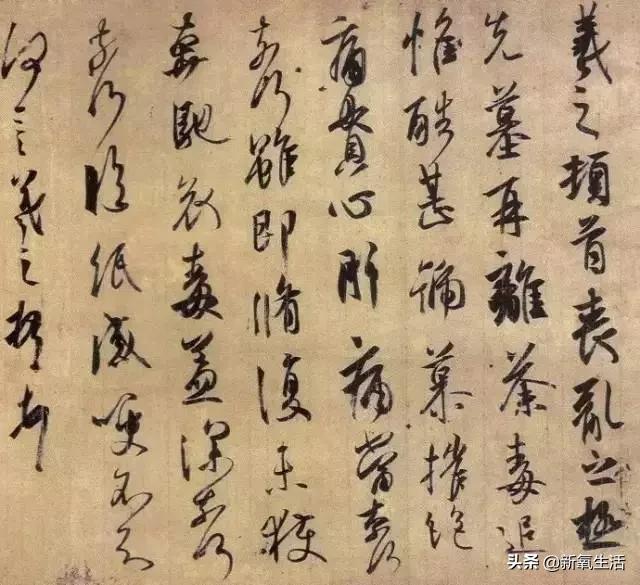 羲之頓首喪亂之極
先墓再離荼毒追
惟酷甚號慕摧絕
痛貫心肝痛當奈何
奈何雖即脩復未獲
奔馳哀毒益深奈何
奈何臨紙感哽不知
何言羲之頓首
头条 @新氧生活